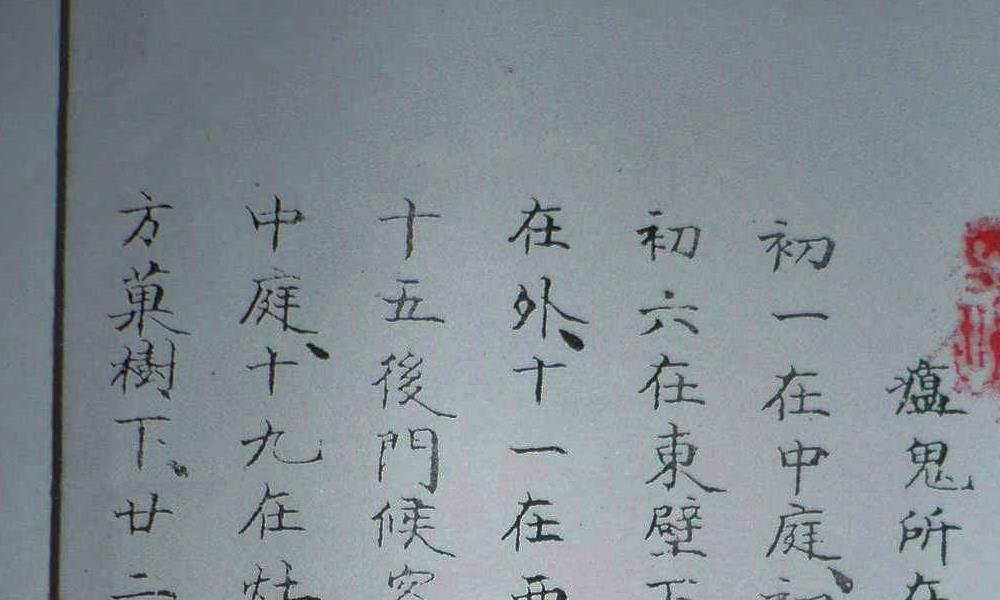 瘟鬼所在
初一在中庭、初
初六在東壁下
在外、十一在西
十五後門候客
中庭、十九在灶
方菓樹下、廿二